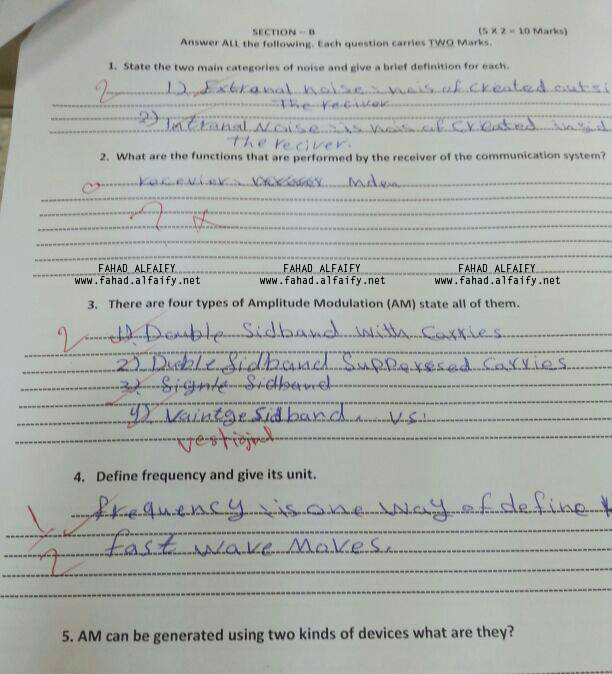 SECTION – B
(5 X 2 = 10 Marks)
Answer ALL the following. Each question carries TWO Marks.
1. State the two main categories of noise and give a brief definition for each.
2
1) Extranal noise: nois of created outsi
The reciver
2) Intranal Noise: is nois of created insid
the reciver.
2. What are the functions that are performed by the receiver of the communication system?
0
recevier:
FAHAD ALFAIFY FAHAD ALFAIFY FAHAD ALFAIFY
www.fahad.alfaify.net www.fahad.alfaify.net www.fahad.alfaify.net
3. There are four types of Amplitude Modulation (AM) state all of them.
2
1) Double Sidband with Carries
2) Duble Sidband Supperesed Carries
3) Signle Sidband
4) Vaintge Sidband. VS
4. Define frequency and give its unit.
1
frequency is one way of define
2
fast wave Moves.
5. AM can be generated using two kinds of devices what are they?